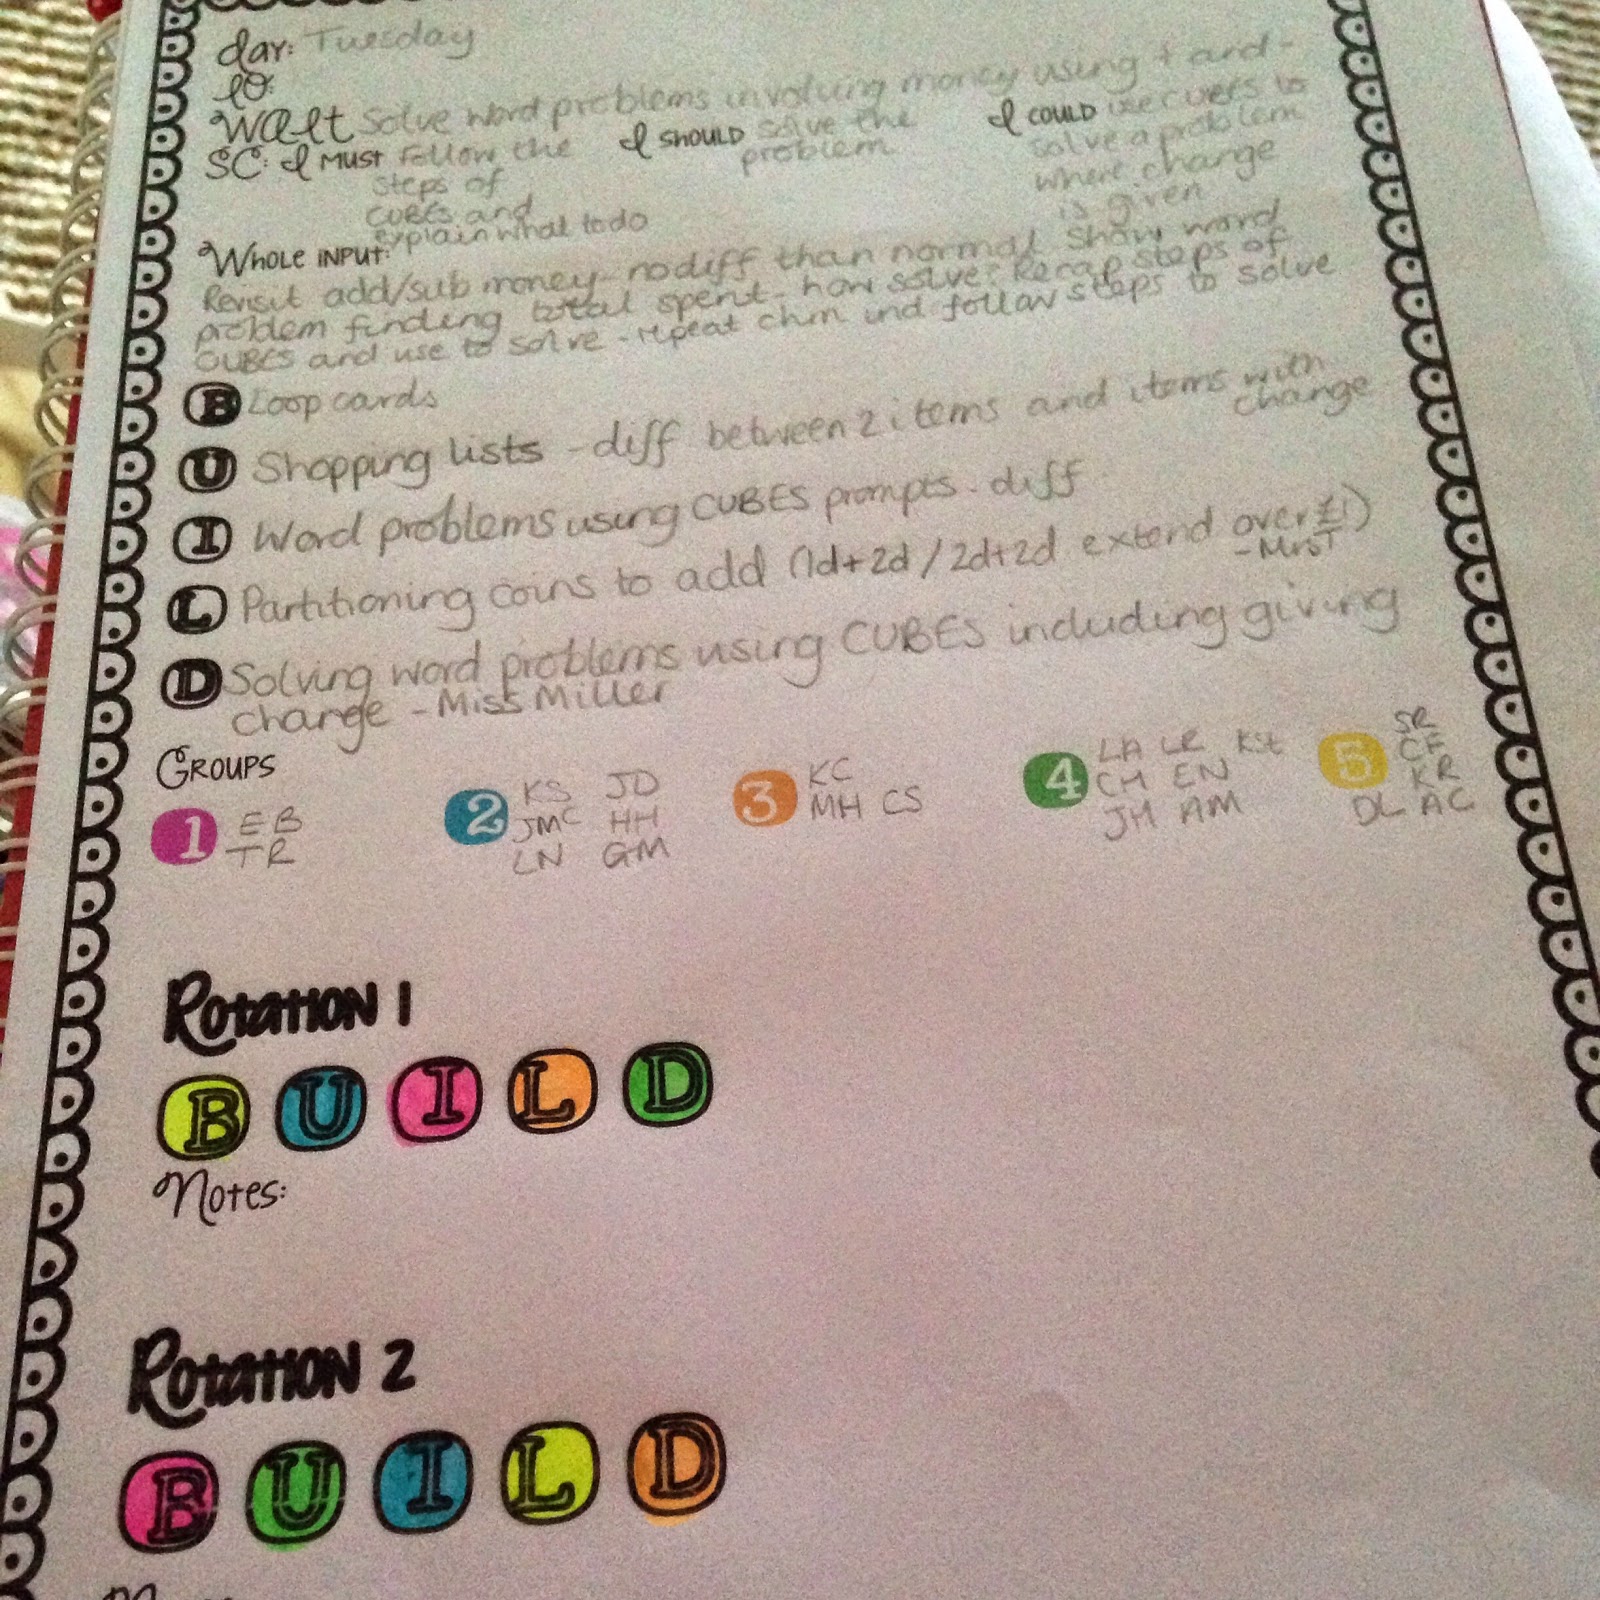 day: Tuesday
LO:
WALT Solve word problems involving money using + and -
SC: I MUST follow the steps of CUBES and explain what to do
I SHOULD solve the problem
I COULD use CUBES to solve a problem where change is given
WHOLE INPUT:
Revisit add/sub money - no diff than normal. Show word
problem finding total spent - how solve? Recap steps of
CUBES and use to solve - repeat chn ind follow steps to solve
B Loop cards
U Shopping lists - diff between 2 items and items with change
I Word problems using CUBES prompts - diff
L Partitioning coins to add (1d+2d / 2d+2d extend over £1)
- Mrs T
D Solving word problems using CUBES including giving
change - Miss Miller
GROUPS
1 EB TR
2 KS JD JMC HH LN GM
3 KC MH CS
4 LA LR KSt CH EN JH AM
5 SR KR DL AC
ROTATION 1
B U I L D
Notes:
ROTATION 2
B U I L D